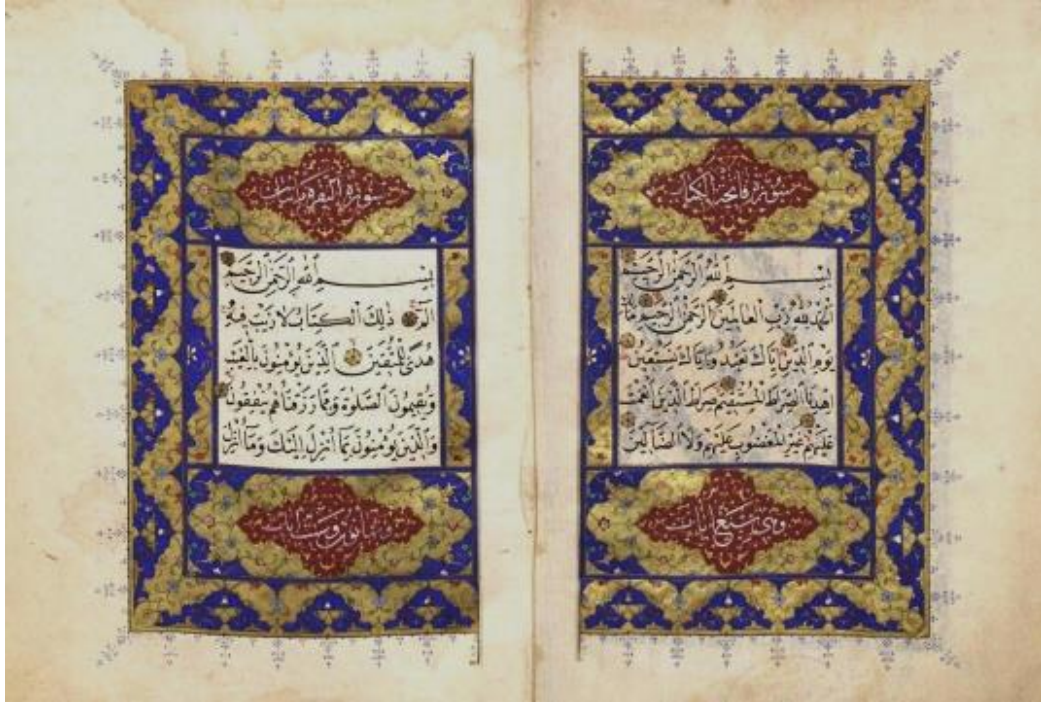 سورة فاتحة الكتاب
بِسْمِ ٱللّٰهِ ٱلرَّحْمٰنِ ٱلرَّحِيمِ
اَلْحَمْدُ لِلّٰهِ رَبِّ الْعَالَمِينَ الرَّحْمٰنِ الرَّحِيمِ مَالِكِ
يَوْمِ الدِّينِ اِيَّاكَ نَعْبُدُ وَاِيَّاكَ نَسْتَعِينُ
اِهْدِنَا الصِّرَاطَ الْمُسْتَقِيمَ صِرَاطَ الَّذِينَ اَنْعَمْتَ
عَلَيْهِمْ غَيْرِ الْمَغْضُوبِ عَلَيْهِمْ وَلَا الضَّآلِّينَ
وهي سبع ايات
سورة البقرة مائتان
بِسْمِ ٱللّٰهِ ٱلرَّحْمٰنِ ٱلرَّحِيمِ
الٓمٓ ذٰلِكَ الْكِتَابُ لَا رَيْبَ فِيهِ
هُدًى لِلْمُتَّقِينَ اَلَّذِينَ يُؤْمِنُونَ بِالْغَيْبِ
وَيُقِيمُونَ الصَّلٰوةَ وَمِمَّا رَزَقْنَاهُمْ يُنْفِقُونَ
وَالَّذِينَ يُؤْمِنُونَ بِمَا اُنْزِلَ اِلَيْكَ وَمَا اُنْزِلَ
وثمانون وست ايات